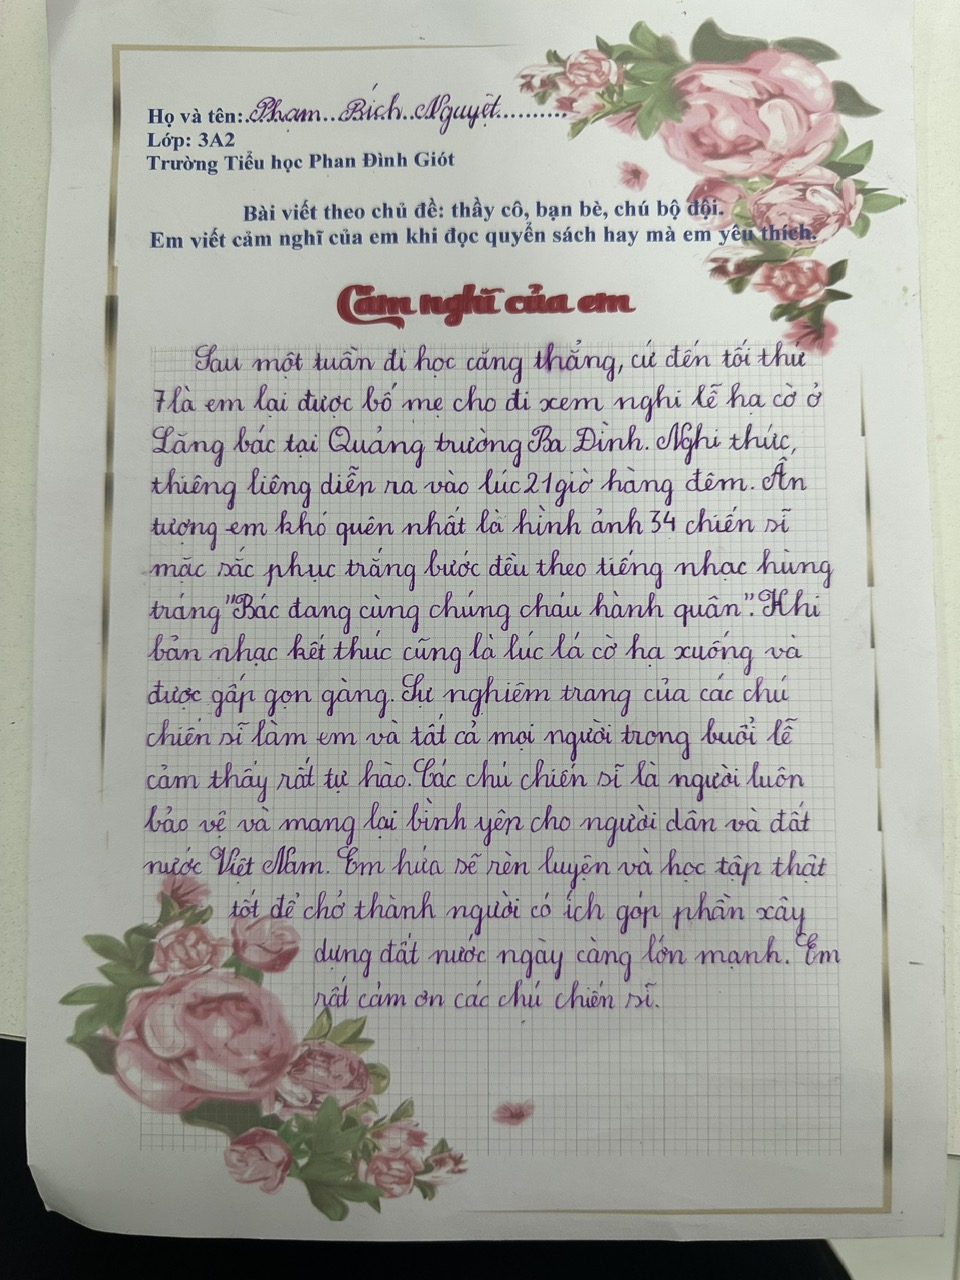 Họ và tên:.Phạm...Bích..Nguyệt..........
Lớp: 3A2
Trường Tiểu học Phan Đình Giót
Bài viết theo chủ đề: thầy cô, bạn bè, chú bộ đội.
Em viết cảm nghĩ của em khi đọc quyển sách hay mà em yêu thích.
Cảm nghĩ của em
Sau một tuần đi học căng thẳng, cứ đến tối thứ
7 là em lại được bố mẹ cho đi xem nghi lễ hạ cờ ở
Lăng bác tại Quảng trường Ba Đình. Nghi thức,
thiêng liêng diễn ra vào lúc 21 giờ hàng đêm. Ấn
tượng em khó quên nhất là hình ảnh 34 chiến sĩ
mặc sắc phục trắng bước đều theo tiếng nhạc hùng
tráng "Bác đang cùng chúng cháu hành quân". Khi
bản nhạc kết thúc cũng là lúc lá cờ hạ xuống và
được gấp gọn gàng. Sự nghiêm trang của các chú
chiến sĩ làm em và tất cả mọi người trong buổi lễ
cảm thấy rất tự hào. Các chú chiến sĩ là người luôn
bảo vệ và mang lại bình yên cho người dân và đất
nước Việt Nam. Em hứa sẽ rèn luyện và học tập thật
tốt để chở thành người có ích góp phần xây
dựng đất nước ngày càng lớn mạnh. Em
rất cảm ơn các chú chiến sĩ.